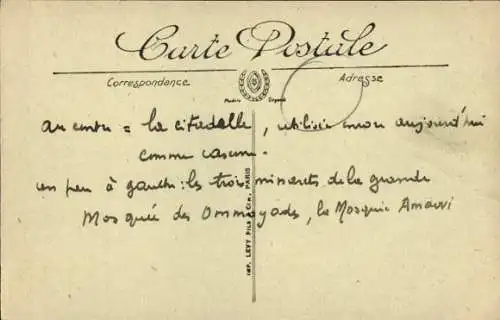 Carte Postale
Correspondance
Adresse
Modèle Déposé
au centre = la citadelle, utilisée encore aujourd'hui
comme caserne.
un peu à gauche : les trois minarets de la grande
Mosquée des Ommoyads, la Mosquée Amawi
IMP. LEVY FILS & CIE, PARIS